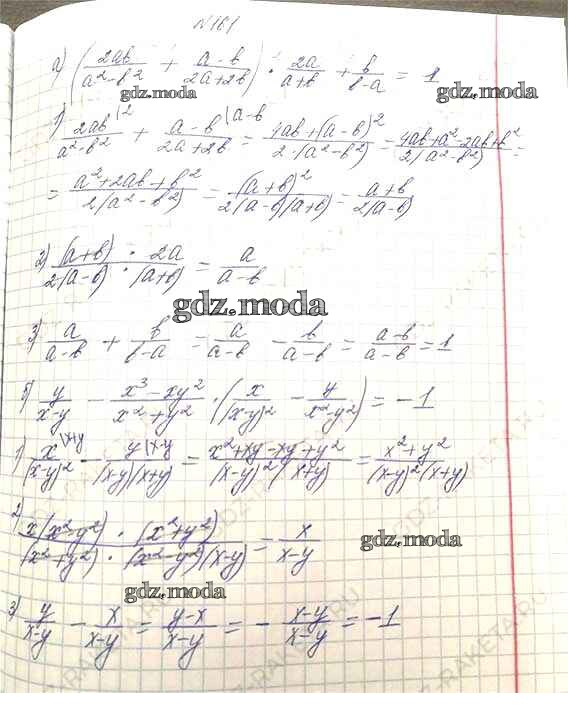 N161
а) (2ab/(a²-b²) + (a-b)/(2a+2b)) · 2a/(a+b) + b/(b-a) = 1
gdz.moda gdz.moda
1) 2ab/(a²-b²) |2 + (a-b)/(2a+2b) |a-b = (4ab+(a-b)²)/(2·(a²-b²)) = (4ab+a²-2ab+b²)/(2(a²-b²)) =
= (a²+2ab+b²)/(2(a²-b²)) = (a+b)²/(2(a-b)(a+b)) = (a+b)/(2(a-b))
2) ((a+b) · 2a)/(2(a-b) · (a+b)) = a/(a-b)
gdz.moda
3) a/(a-b) + b/(b-a) = a/(a-b) - b/(a-b) = (a-b)/(a-b) = 1
б) y/(x-y) - (x³-xy²)/(x²+y²) · (x/(x-y)² - y/(x²-y²)) = -1
1) x/(x-y)² |x+y - y/((x-y)(x+y)) |x-y = (x²+xy-xy+y²)/((x-y)²(x+y)) = (x²+y²)/((x-y)²(x+y))
2) (x(x²-y²) · (x²+y²))/((x²+y²) · (x²-y²)(x-y)) = x/(x-y)
gdz.moda
gdz.moda
3) y/(x-y) - x/(x-y) = (y-x)/(x-y) = - (x-y)/(x-y) = -1